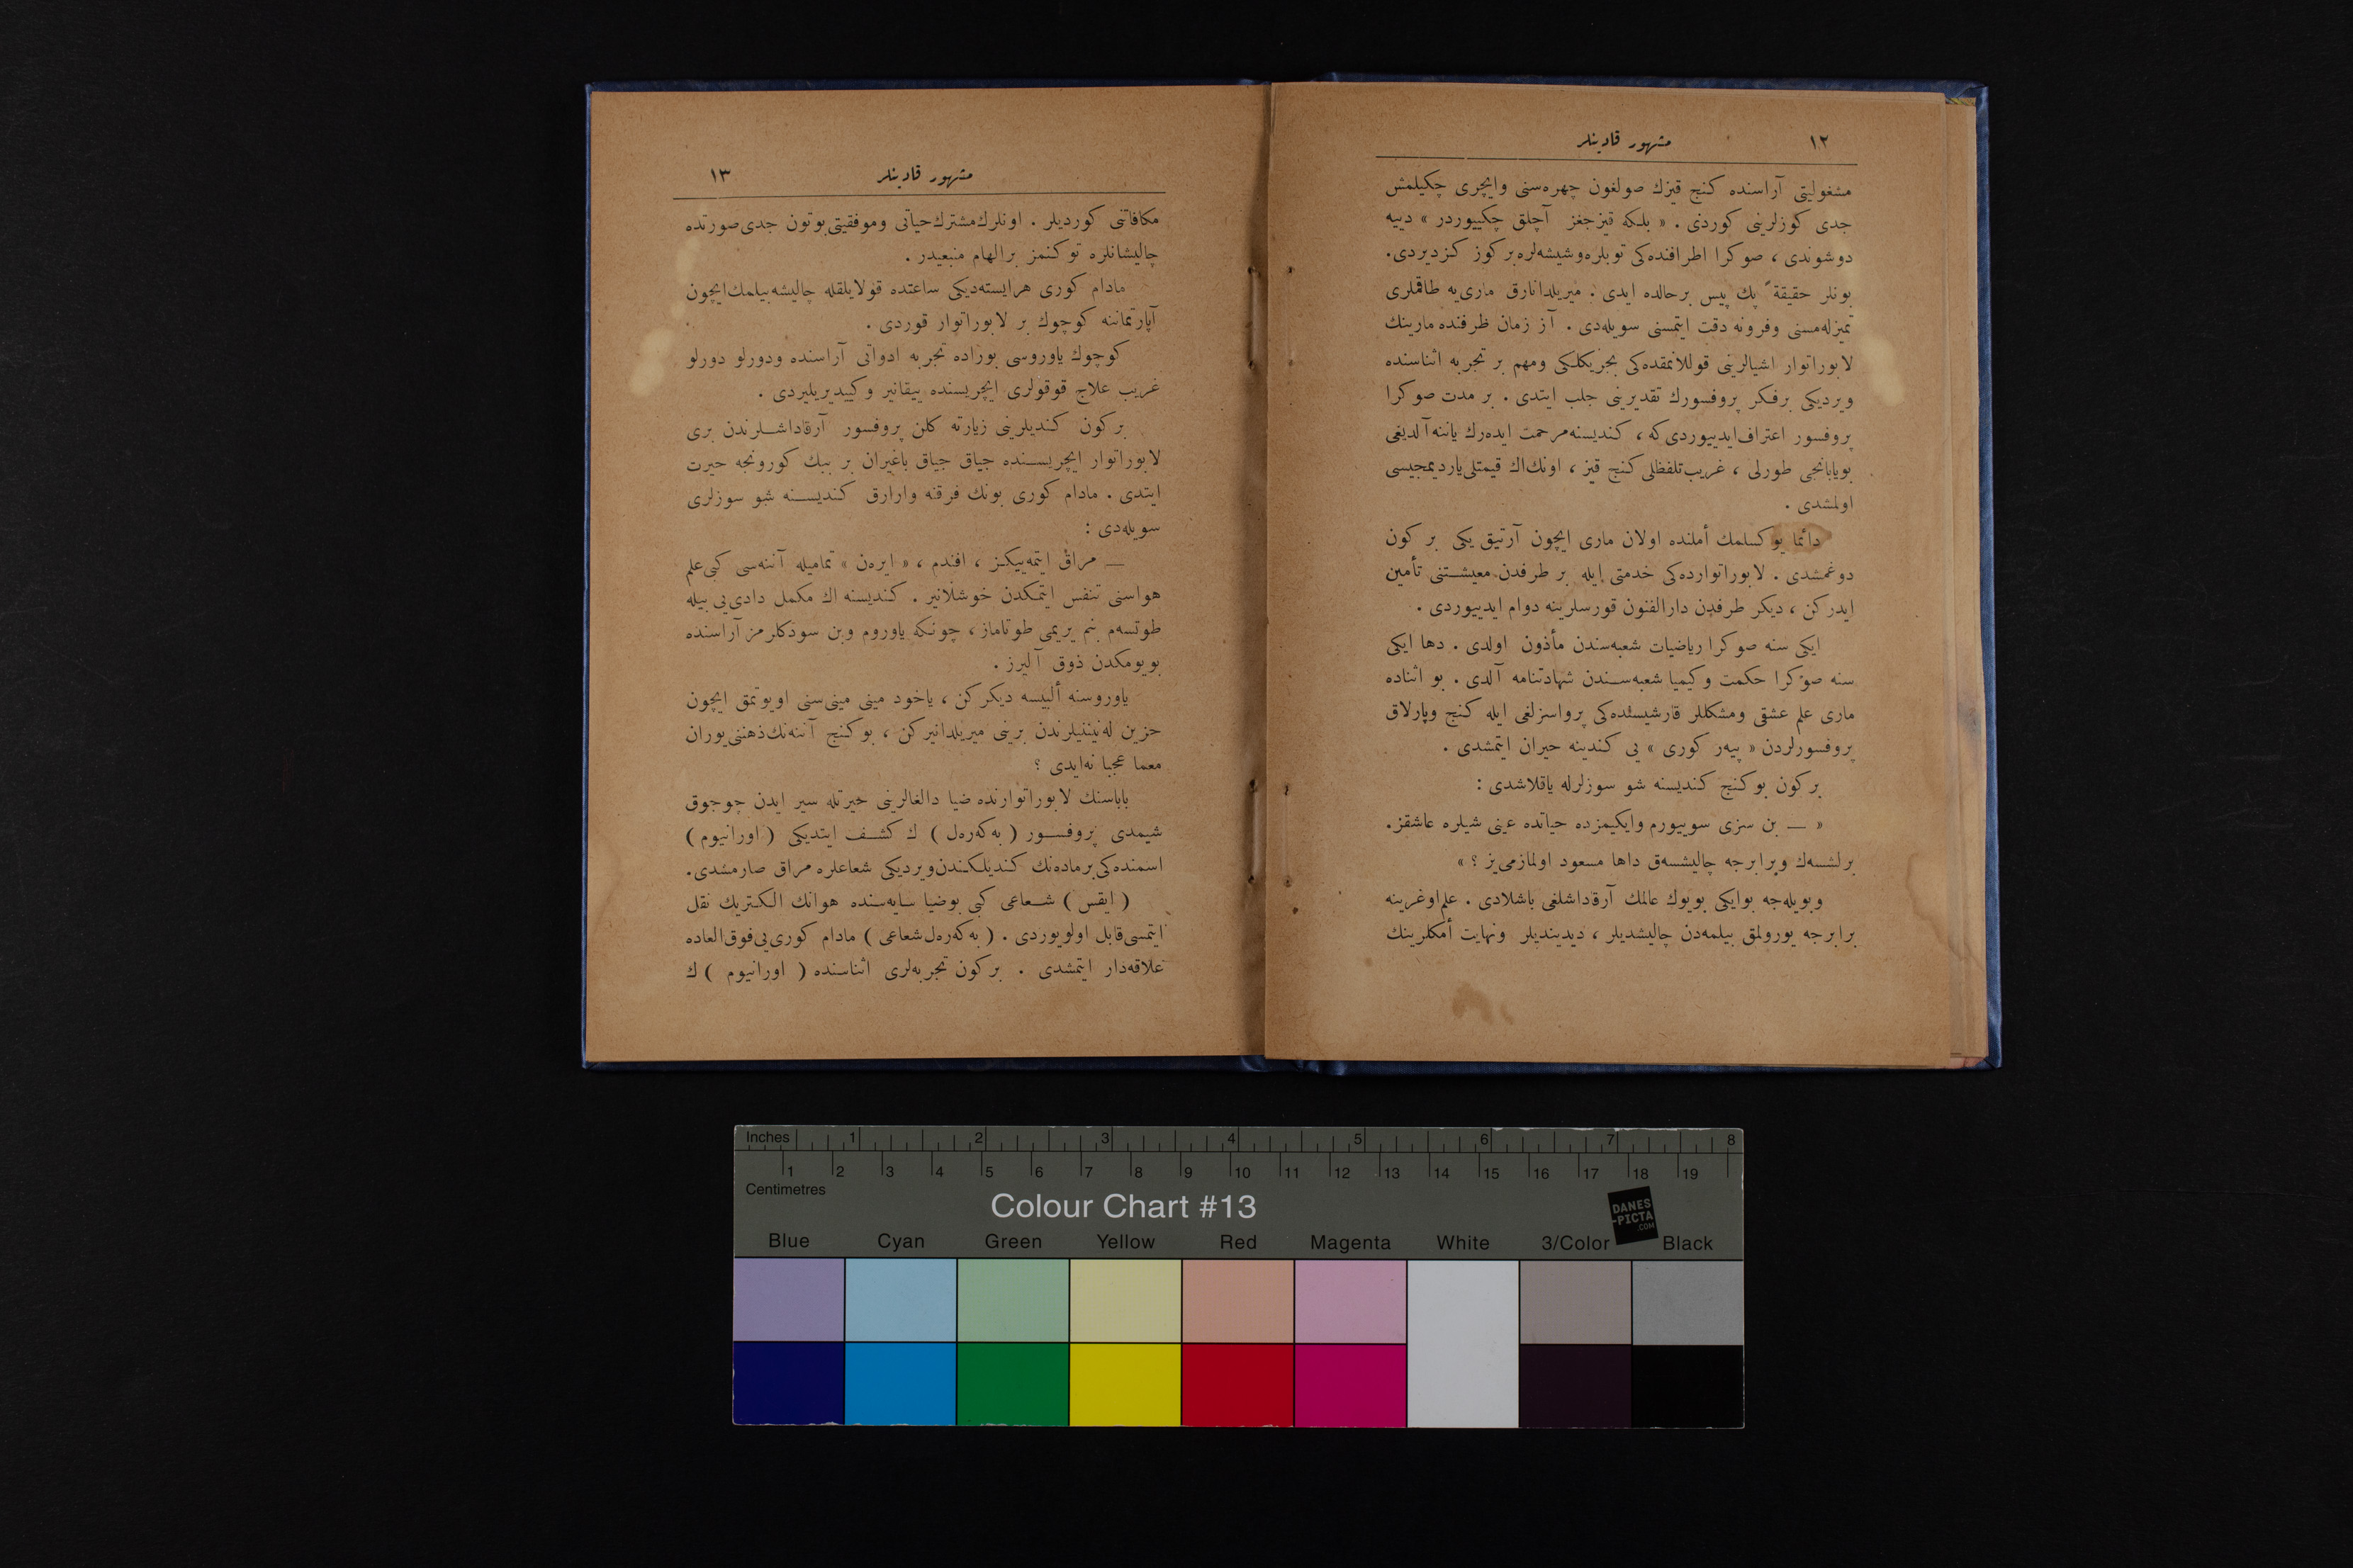 ١٢
مشهور قادینلر
مشغولیتی آراسنده کنج قیزك صولغون چهره‌سنی وایچری چکیلمش
جدی کوزلرینی کوردی . « بلکه قیزجغز آچلق چکییوردر » دییه
دوشوندی ، صوکرا اطرافنده‌کی توپلره‌وشیشه‌لره‌بر کوز کزدیردی.
بونلر حقیقةً پك پیس برحالده ایدی . میریلدانارق ماری‌یه طاقملری
تمیزله‌مسنی وفرونه دقت ایتمسنی سویله‌دی . آز زمان ظرفنده مارینك
لابوراتوار اشیالرینی قوللانمقده‌کی بجریکلکی ومهم بر تجربه اثناسنده
ویردیکی برفکر پروفسورك تقدیرینی جلب ایتدی . بر مدت صوکرا
پروفسور اعتراف‌ایدییوردی‌که ، کندیسنه‌مرحمت ایده‌رك یاننه‌آلدیغی
بویابانجی طورلی ، غریب‌تلفظلی کنج قیز ، اونك‌اك قیمتلی‌یاردیمجیسی
اولمشدی .
دائما یوکسلمك أملنده اولان ماری ایچون آرتیق یکی بر کون
دوغمشدی . لابوراتوارده‌کی خدمتی ایله بر طرفدن معیشتنی تأمین
ایدرکن ، دیکر طرفدن دارالفنون قورسلرینه دوام ایدییوردی .
ایکی سنه صوکرا ریاضیات شعبه‌سندن مأذون اولدی . دها ایکی
سنه صوکرا حکمت وکیمیا شعبه‌سندن شهادتنامه آلدی . بو اثناده
ماری علم عشقی ومشکللر قارشیسنده‌کی پرواسزلغی ایله کنج وپارلاق
پروفسورلردن « پیه‌ر کوری » یی کندینه حیران ایتمشدی .
بر کون بوکنج کندیسنه شو سوزلرله یاقلاشدی :
« — بن سزی سوییورم وایکیمزده حیاتده عینی شیلره عاشقز.
برلشسه‌ك وبرابرجه چالیشسه‌ق داها مسعود اولمازمی‌یز ؟ »
وبویله‌جه بوایکی بویوك عالمك آرقاداشلغی باشلادی . علم‌اوغرینه
برابرجه یورولمق بیلمه‌دن چالیشدیلر ، دیدیندیلر ونهایت أمکلرینك
مشهور قادینلر
١٣
مکافاتنی کوردیلر . اونلرك‌مشترك‌حیاتی وموفقیتی‌بوتون جدی‌صورتده
چالیشانلره توکنمز برالهام منبعیدر .
مادام کوری هرایسته‌دیکی ساعتده قولایلقله چالیشه‌بیلمك‌ایچون
آپارتماننه کوچوك بر لابوراتوار قوردی .
کوچوك یاوروسی بوراده تجربه ادواتی آراسنده ودورلو دورلو
غریب علاج قوقولری ایچریسنده ییقانیر وکییدیریلیردی .
بر کون کندیلرینی زیارته کلن پروفسور آرقاداشلرندن بری
لابوراتوار ایچریسنده جیاق جیاق باغیران بر ببك کورونجه حیرت
ایتدی . مادام کوری بونك فرقنه وارارق کندیسنه شو سوزلری
سویله‌دی :
— مراق ایتمه‌ییکز ، افندم ، « ایره‌ن » تمامیله آننه‌سی کبی‌علم
هواسنی تنفس ایتمکدن خوشلانیر . کندیسنه اك مکمل دادی‌یی بیله
طوتسه‌م بنم یریمی طوتاماز ، چونکه یاوروم وبن سودکلرمز آراسنده
بویومکدن ذوق آلیرز .
یاوروسنه ألبیسه دیکرکن ، یاخود مینی مینی‌سنی اویوتمق ایچون
حزین له‌نیننیلرندن برینی میریلدانیرکن ، بوکنج آننه‌نك‌ذهننی‌یوران
معما عجبا نه‌ایدی ؟
باباسنك لابوراتوارنده ضیا دالغالرینی حیرتله سیر ایدن چوجوق
شیمدی پروفسور ( به‌که‌ره‌ل ) ك کشف ایتدیکی ( اورانیوم )
اسمنده‌کی‌برماده‌نك کندیلکندن‌ویردیکی شعاعلره مراق صارمشدی.
( ایقس ) شعاعی کبی بوضیا سایه‌سنده هوانك الکتریك نقل
ایتمسی‌قابل اولویوردی . ( به‌که‌ره‌ل‌شعاعی ) مادام کوری‌یی‌فوق‌العاده
علاقه‌دار ایتمشدی . بر کون تجربه‌لری اثناسنده ( اورانیوم ) ك
Inches 1 2 3 4 5 6 7 8
1 2 3 4 5 6 7 8 9 10 11 12 13 14 15 16 17 18 19
Centimetres
Colour Chart #13
DANES
-PICTA
.COM
Blue Cyan Green Yellow Red Magenta White 3/Color Black